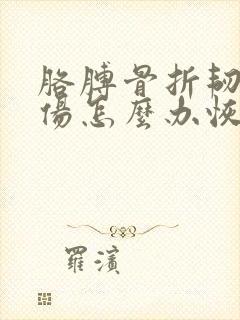 胳膊骨折韧
傷怎麼办恢
羅濱